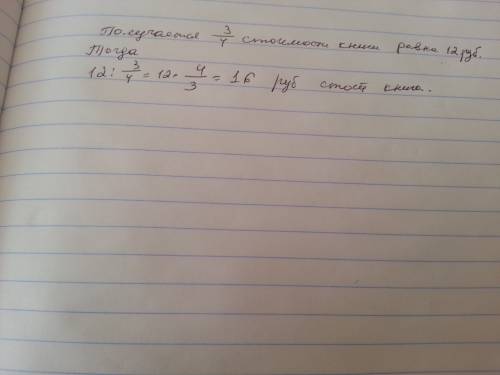 Получается 3/4 стоимости книги равна 12 руб.
Тогда
12 : 3/4 = 12 · 4/3 = 16 руб стоит книга.